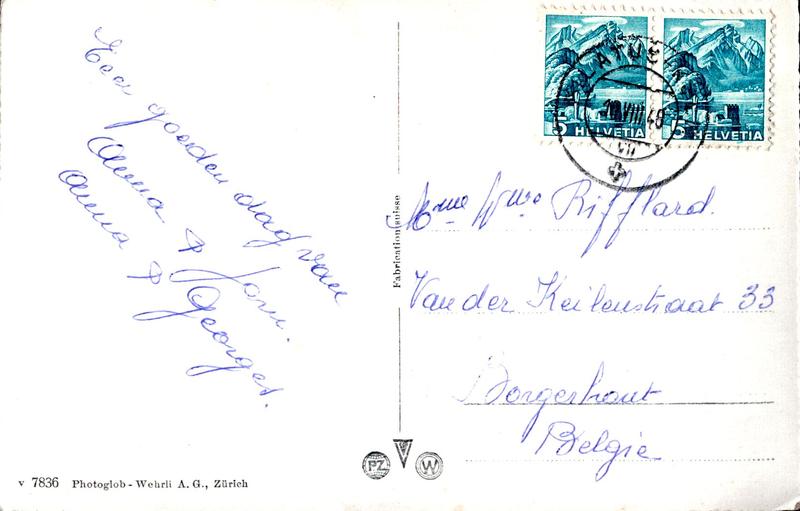 Een goeden dag van
Anna & Jan.
Anna & Georges.
Fabrication suisse
v 7836 Photoglob-Wehrli A. G., Zürich
PZ
W
5 HELVETIA
5 HELVETIA
VIII 48
Riffland.
Van der Keilenstraat 33
Borgerhout
Belgie